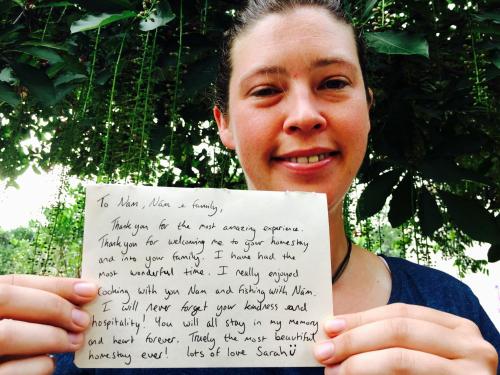 To Nam, Năm & family,
Thank you for the most amazing experience.
Thank you for welcoming me to your homestay
and into your family. I have had the
most wonderful time. I really enjoyed
Cooking with you Nam and fishing with Năm.
I will never forget your kindness and
hospitality! You will all stay in my memory
and heart forever. Truely the most beautiful
homestay ever! lots of love Sarah ü